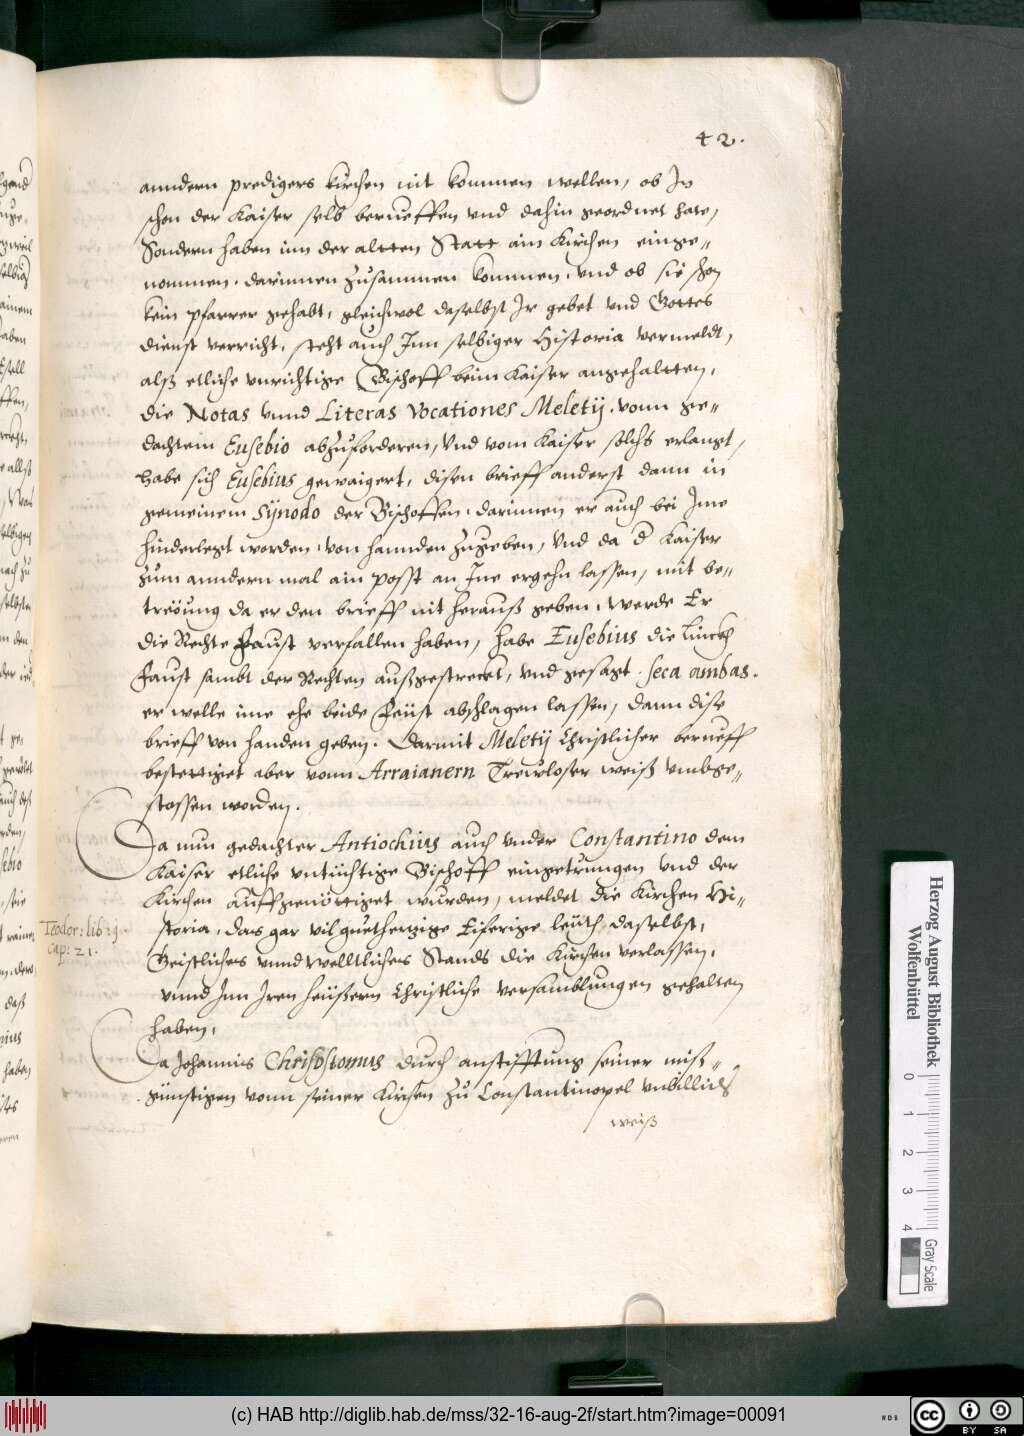 42.
anndern predigers kirchen nit kommen wellen, ob In
schon der Kaiser selb berueffen vnd dahin geordnet hate,
Sondern haben inn der altten Statt ain Kirchen einge-
nommen. darinnen zusammen kommen. vnd ob sie schon
kein pfarrer gehabt, gleichwol daselbst Ir gebet vnd Gottes
dienst verricht, steht auch Inn selbiger Historia vermeldt,
alß etliche vnrichtige Bischoff beim Kaiser angehaltten,
die Notas vnnd Literas Vocationes Meletij. vonn ge-
dachtem Eusebio abzuforderen, Vnd vom Kaiser solchs erlangt,
habe sich Eusebius gewaigert, disen brieff anderst dann in
gemeinem Sÿnodo der Bischoffen. darinnen er auch bei Ime
hinderlegt worden. von hannden zugeben, Vnd da d Kaiser
zum anndern mal ain post an Ine ergehn lassen, mit be-
tröung da er den brieff nit herauß geben. werde Er
die Rechte Faust verfallen haben, habe Eusebius die linckh
Faust sambt der Rechten außgestreckt, vnd gesagt. seca ambas.
er welle ime ehe beide Feüst abschlagen lassen, dann dise
brieff von handen geben. Darmit Meletij Christlicher berueff
bestettiget aber vonn Arraianern Trewloser weiß vmbge-
stossen worden.
Da nun gedachter Antiochius auch vnder Constantino dem
Kaiser etliche vntüchtige Bischoff eingetrungen vnd der
Kirchen auffgenöttiget wurden, meldet die Kirchen Hi-
storia. das gar vil guethertzige Eiferige leüth daselbst,
Geistliches vnnd welltliches Stands die Kirchen verlassen,
vnnd Inn Iren heüßern Christliche versamblungen gehalten
haben,
Teodor: lib: 1.
cap: 21.
Da Johannis Chrisostomus durch anstifftung seiner miß-
günstigen vonn seiner Kirchen zu Constantinopel vnbillich
weiß
Herzog August Bibliothek
Wolfenbüttel
0 1 2 3 4
Gray Scale
(c) HAB http://diglib.hab.de/mss/32-16-aug-2f/start.htm?image=00091
WDB
cc
BY SA